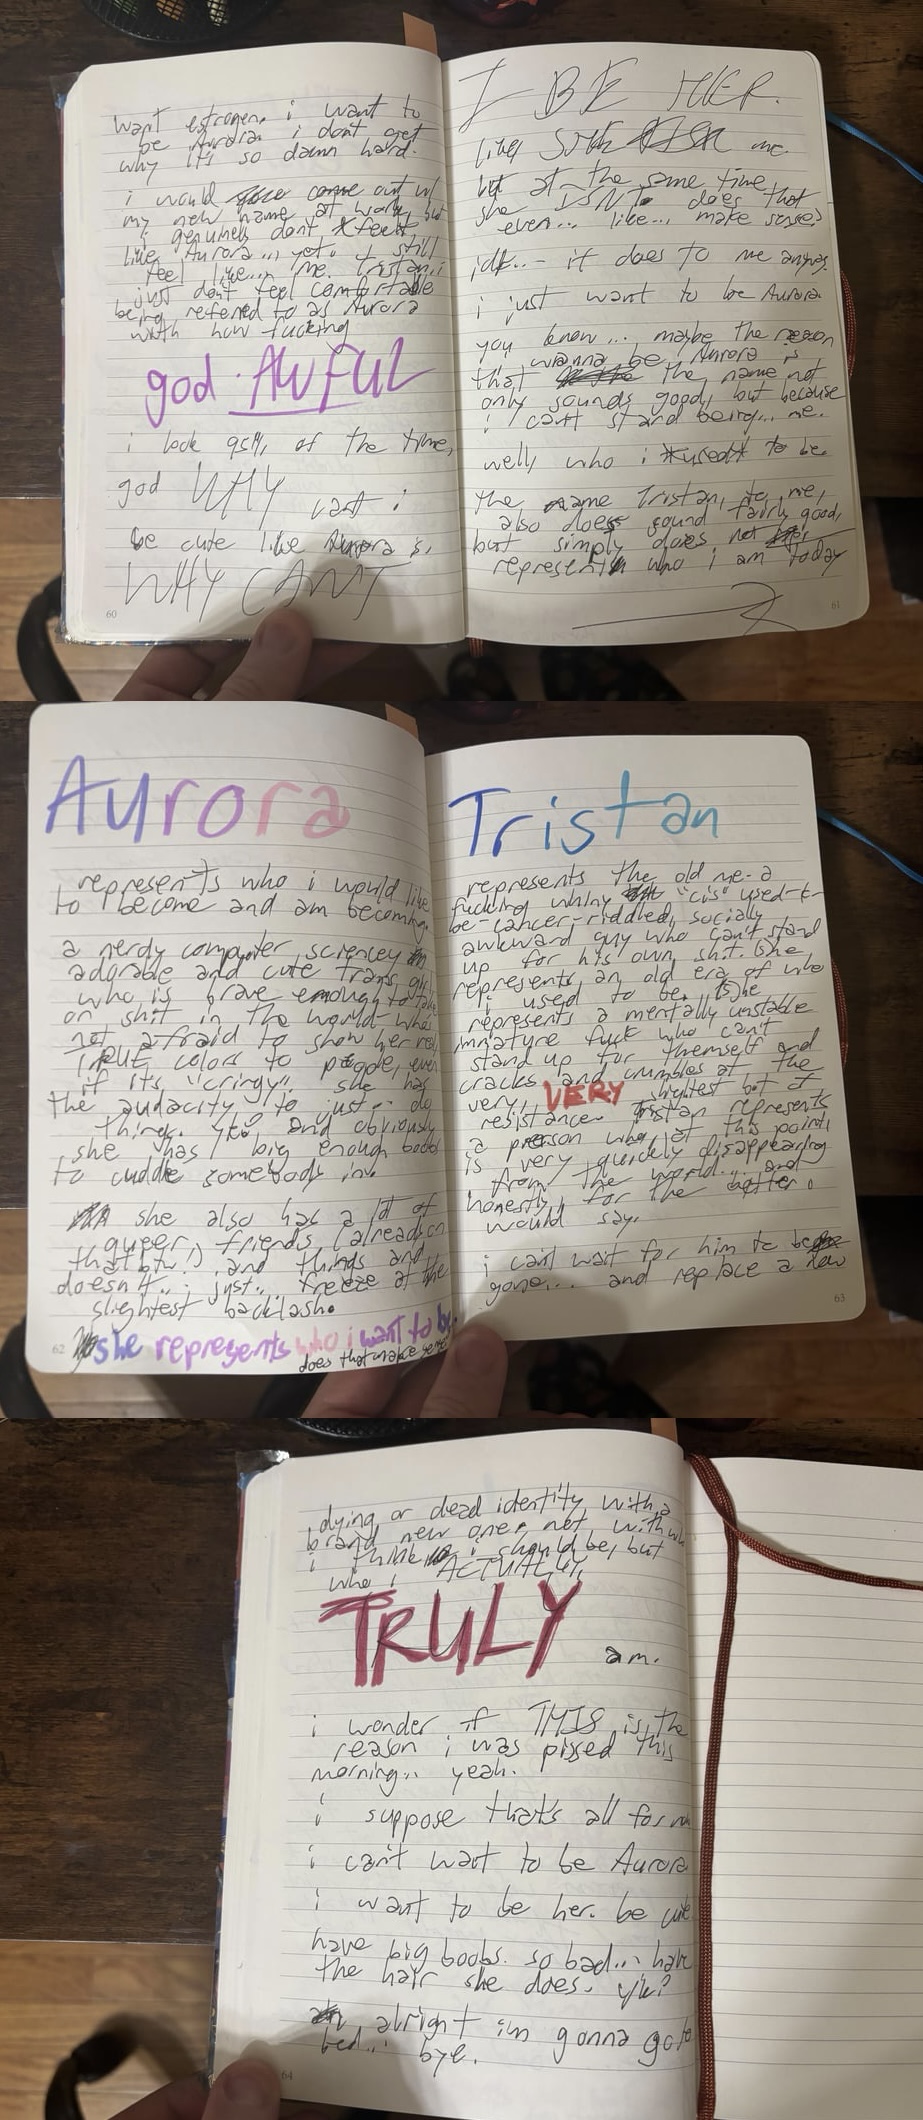 want estrogen. i want to
be Aurora. i don't get
why it's so damn hard.
i would come out w/
my new name at work, but
i genuinely dont feel
like Aurora... yet. I still
feel like... me. Tristan. i
just don't feel comfortable
being referred to as Aurora
with how fucking
god AWFUL
i look 95% of the time,
god WHY cant i
be cute like Aurora is,
WHY CAN'T
60
I BE HER.
like, SHE me.
but at the same time,
she ISN'T. does that
even... like... make sense?
idk... it does to me anyway.
i just want to be Aurora.
you know... maybe the reason
i wanna be Aurora is
that the name not
only sounds good, but because
i can't stand being... me.
well, who i *used* to be.
the name Tristan, to me,
also does sound fairly good,
but simply does not
represent who i am today
61
Aurora
represents who i would like
to become and am becoming.
a nerdy computer sciencey
adorable and cute trans girl
who is brave enough to take
on shit in the world- who's
not afraid to show her real
TRUE colors to people, even
if its "cringy". she has
the audacity to just.. do
things. yk? and obviously
she has big enough boobs
to cuddle somebody in.
she also has a lot of
queer friends (already on
that btw!) and things and
doesn't... just... freeze at the
slightest backlash.
she represents who i want to be.
does that make sense
62
Tristan
represents the old me- a
fucking whiny "cis" used-to-
be-cancer-riddled, socially
awkward guy who can't stand
up for his own shit. (s)he
represents an old era of who
i used to be. (s)he
represents a mentally unstable
immature fuck who can't
stand up for themself and
cracks and crumbles at the
very, VERY slightest bit of
resistance. Tristan represents
a person who, at this point,
is very quickly disappearing
from the world... and
honestly, for the better i
would say.
i can't wait for him to be
gone... and replace a
63
dying or dead identity with a
brand new one, not with who
i think i should be, but
who i ACTUALLY,
TRULY am.
i wonder if THIS is the
reason i was pissed this
morning.. yeah.
i suppose that's all for now
i can't wait to be Aurora
i want to be her. be cute
have big boobs. so bad... have
the hair she does. y'k?
alright im gonna go to
bed... bye.
64